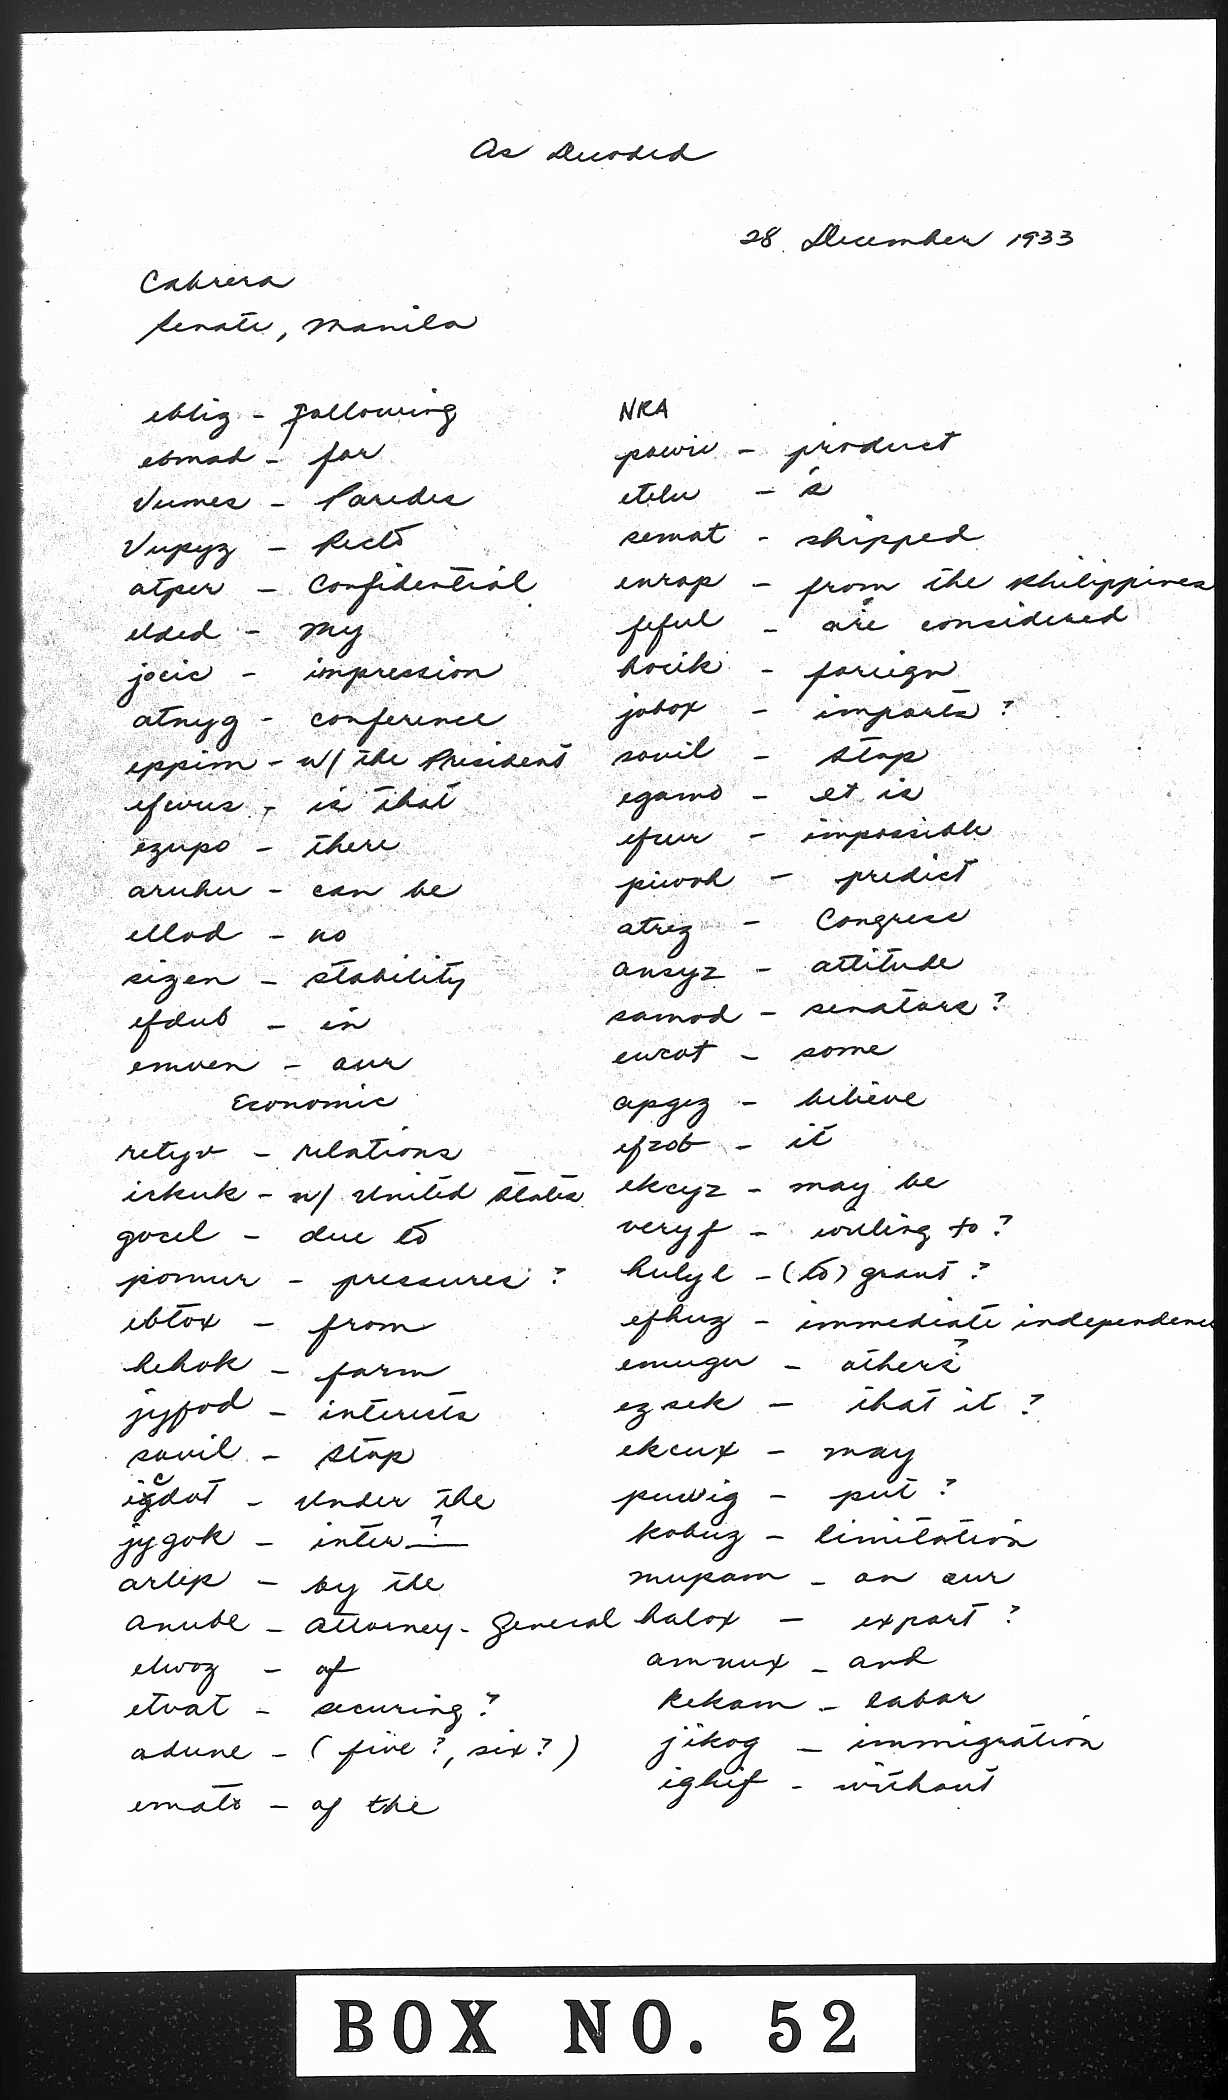 As Decoded
28 December 1933
Cabrera
Senate, Manila
eblig - following
ebmad - for
Vumes - Paredes
Vupyz - Recto
atper - Confidential
elded - my
jocic - impression
atnyg - conference
eppim - w/ the President
efwus - is that
ezupo - there
aruhu - can be
ellod - no
sizen - stability
efdub - in
emven - our
Economic
retyv - relations
iskuk - w/ United States
gocel - due to
pomur - pressures ?
ebtox - from
hehok - farm
jypod - interests
sovil - stop
icdot - Under the
jygok - inter ?
arlep - by the
anube - Attorney-General
elwoz - of
etvat - securing ?
adune - (five ?, six ?)
emato - of the
NRA
powic - product
etelu - is
semat - shipped
enrap - from the Philippines
feful - are considered
hocik - foreign
jobox - imports ?
sovil - stop
egamo - It is
efzur - impossible
piwoh - predict
atrez - Congress
ansyz - attitude
samod - senators ?
eucot - some
apgez - believe
efzob - it
ekcyz - may be
veryf - willing to ?
hulyl - (to) grant ?
efhuz - immediate independence
emugu - others ?
ezsek - that it ?
ekcux - may
puwig - put ?
kobuz - limitation
mupam - on our
halox - export ?
amnux - and
kekam - labor
jikog - immigration
ighif - without
BOX NO. 52